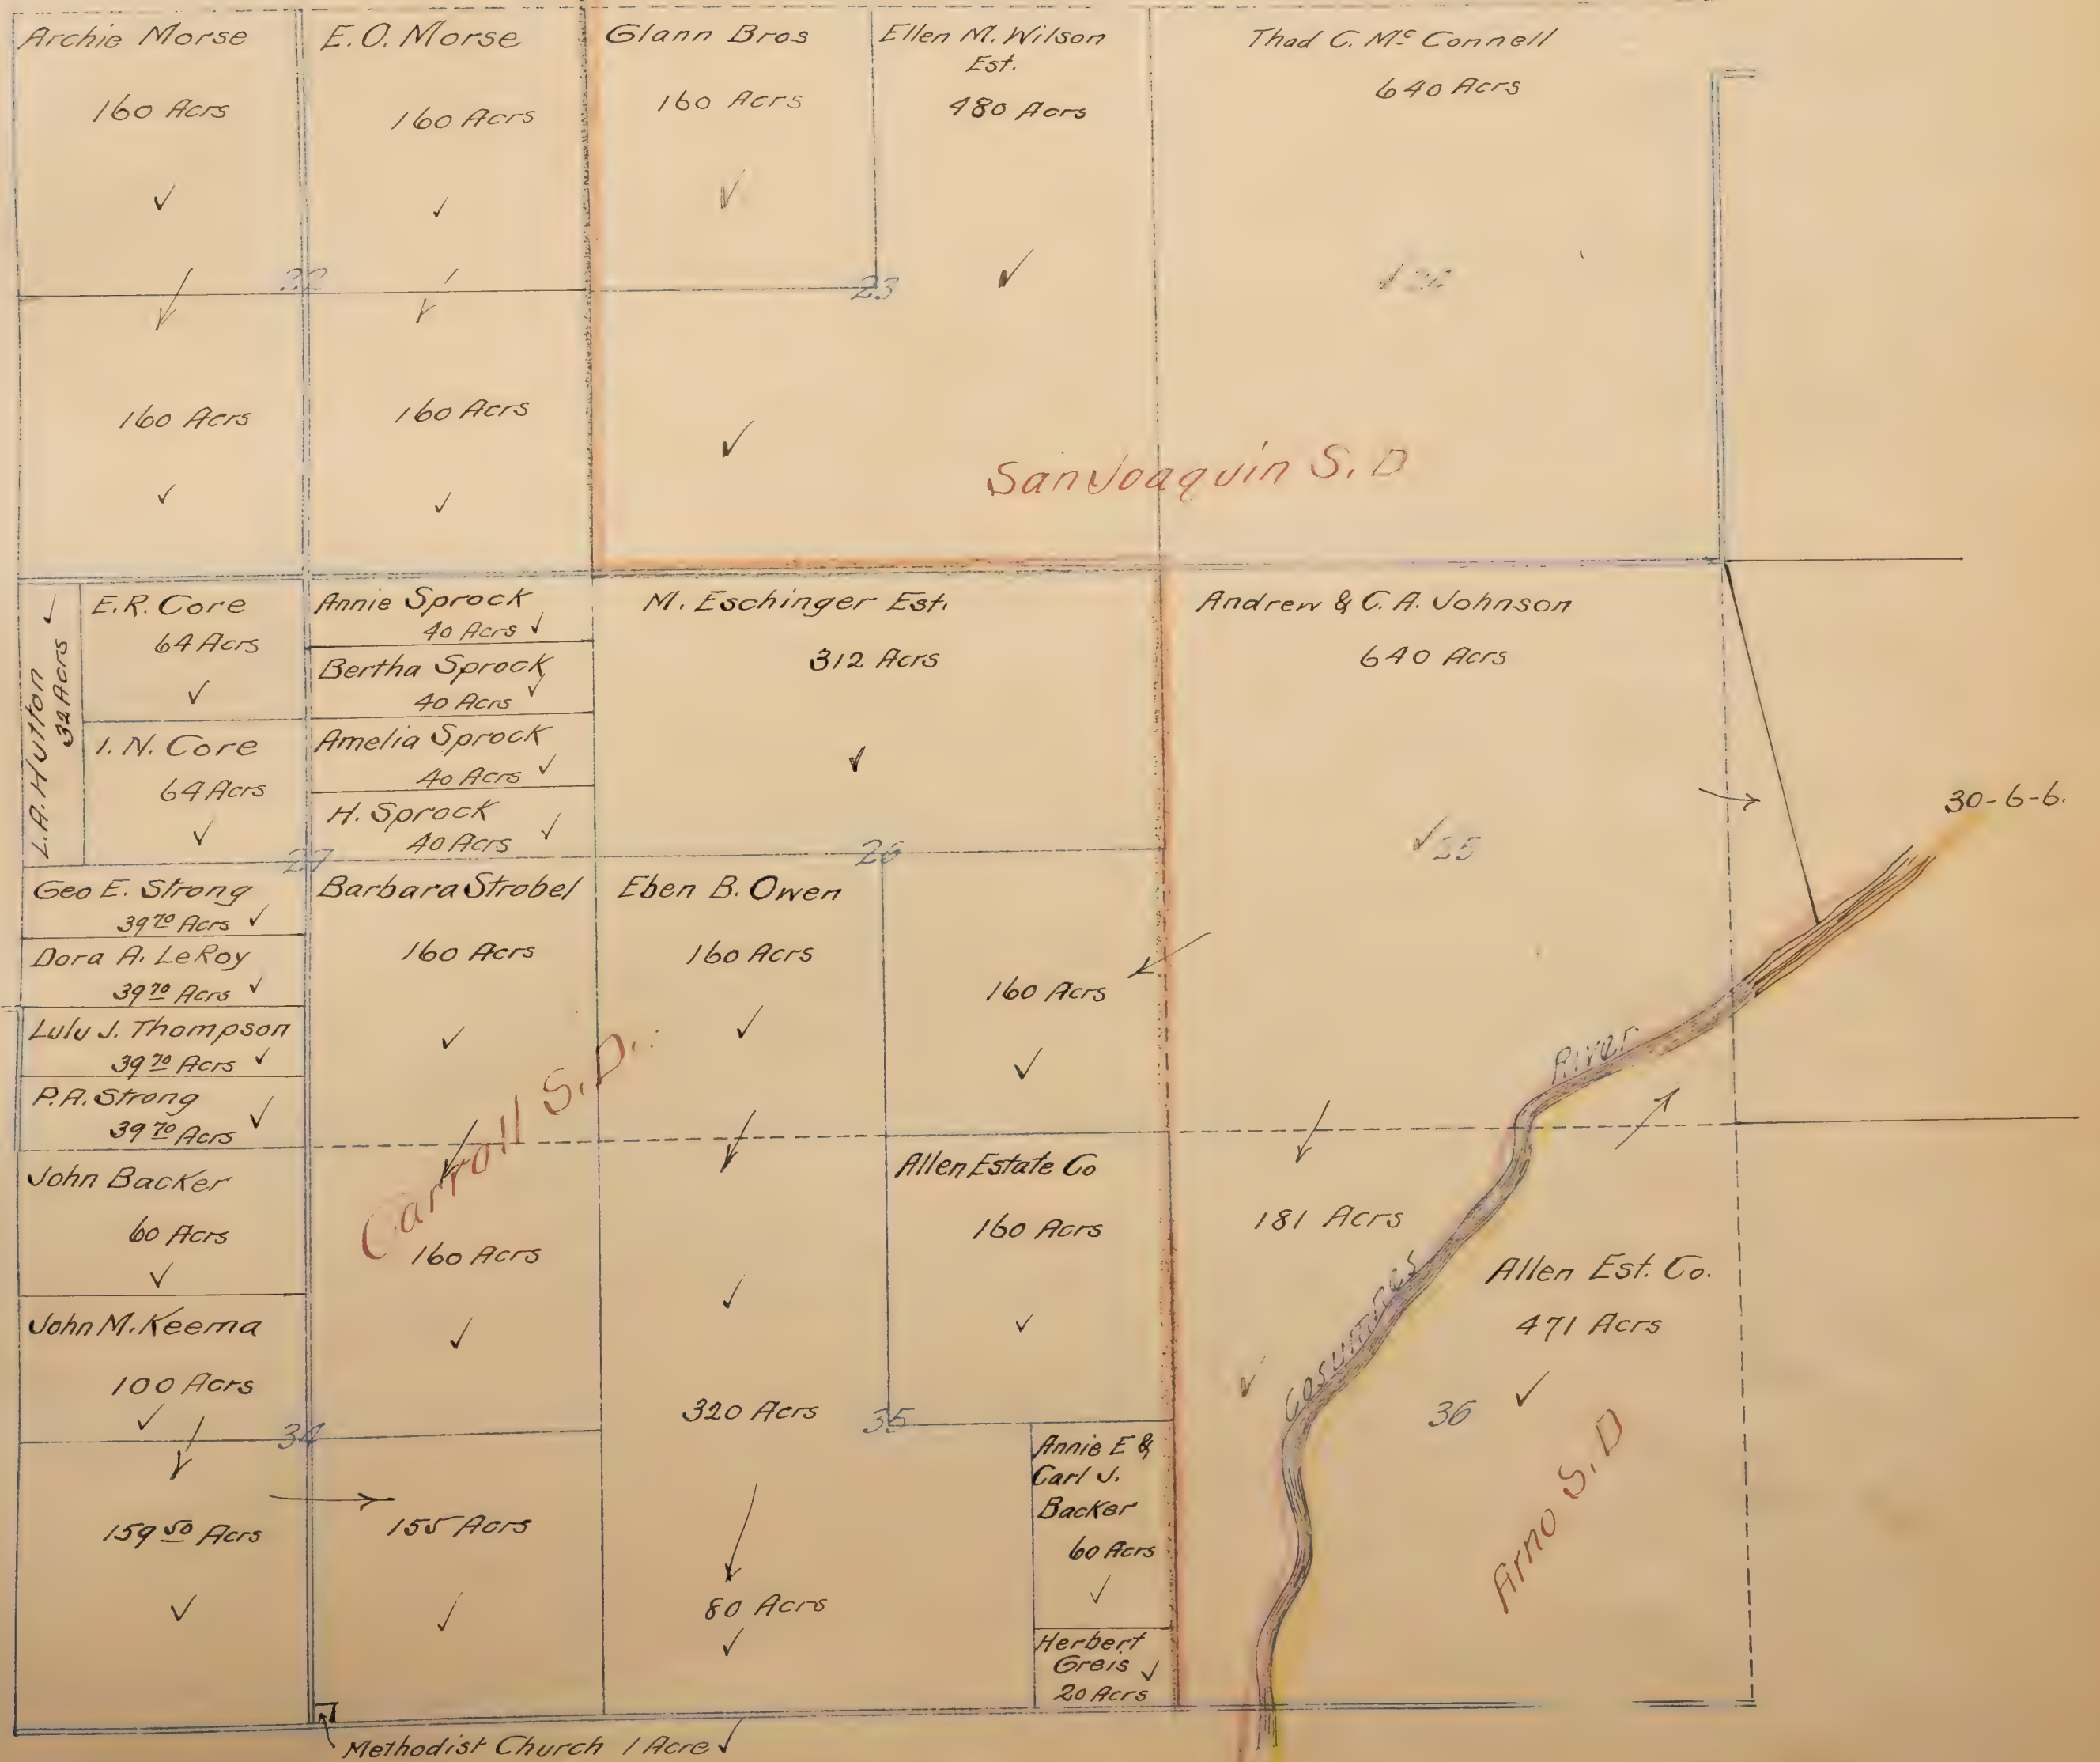 Archie Morse
160 Acrs
E. O. Morse
160 Acrs
Glann Bros
160 Acrs
Ellen M. Wilson
Est.
480 Acrs
Thad C. Mc Connell
640 Acrs
22
23
160 Acrs
160 Acrs
San Joaquin S. D
L.A. Hutton
32 Acrs
E.R. Core
64 Acrs
I. N. Core
64 Acrs
Annie Sprock
40 Acrs
Bertha Sprock
40 Acrs
Amelia Sprock
40 Acrs
H. Sprock
40 Acrs
M. Eschinger Est.
312 Acrs
Andrew & C. A. Johnson
640 Acrs
30-6-6.
27
26
25
Geo E. Strong
39 70 Acrs
Dora A. LeRoy
39 70 Acrs
Lulu J. Thompson
39 70 Acrs
P.A. Strong
39 70 Acrs
Barbara Strobel
160 Acrs
Eben B. Owen
160 Acrs
160 Acrs
Carroll S. D.
Cosumnes River
John Backer
60 Acrs
John M. Keema
100 Acrs
160 Acrs
320 Acrs
Allen Estate Co
160 Acrs
181 Acrs
Allen Est. Co.
471 Acrs
34
35
36
159 50 Acrs
155 Acrs
80 Acrs
Annie E &
Carl J.
Backer
60 Acrs
Herbert
Greis
20 Acrs
Arno S. D
Methodist Church 1 Acre